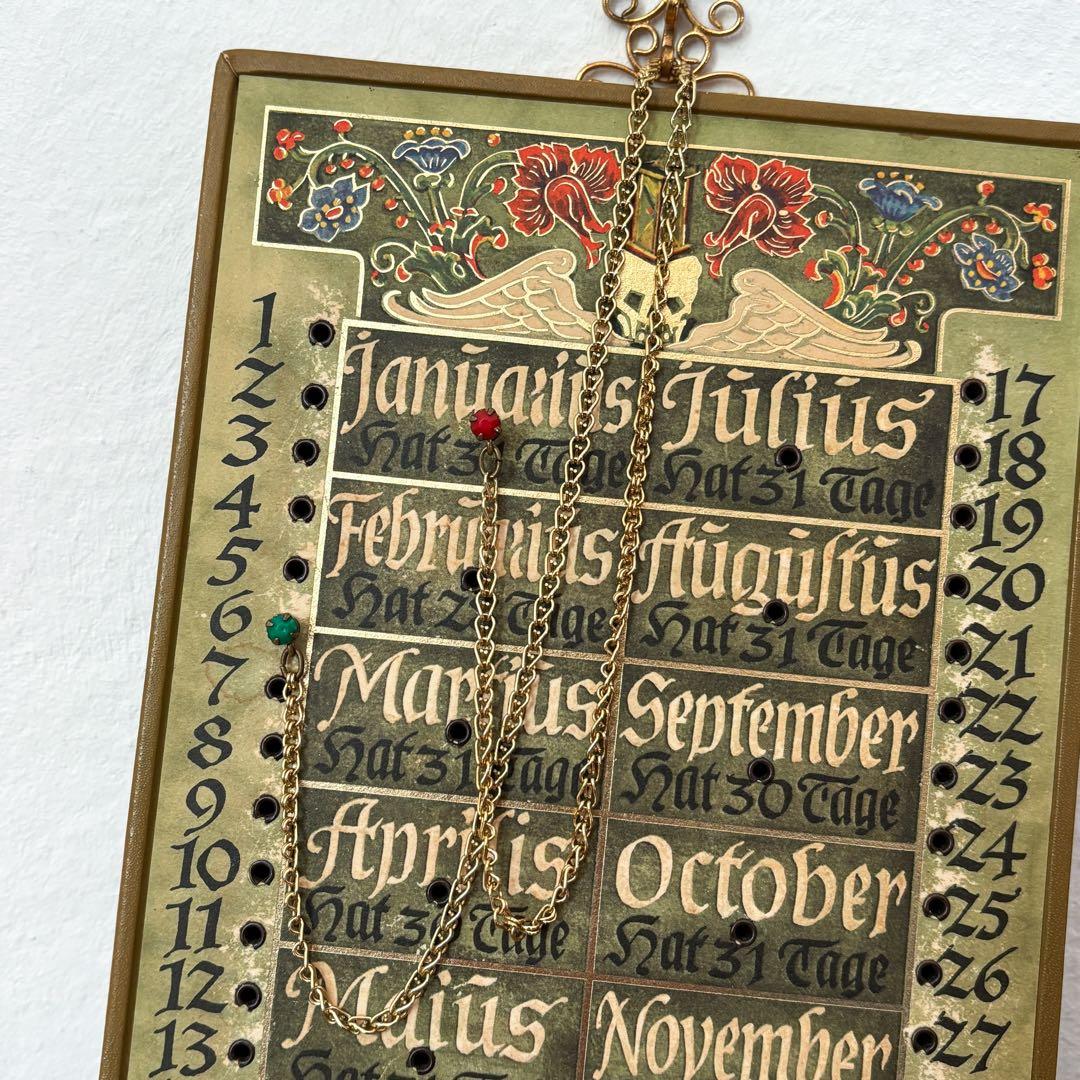 1
2
3
4
5
6
7
8
9
10
11
12
13
Januarius
Hat Tage
Februarius
Hat Tage
Martius
Hat 31 Tage
Aprilis
Hat Tage
Maius
Hat
Julius
Hat 31 Tage
Augustus
Hat 31 Tage
September
Hat 30 Tage
October
Hat 31 Tage
November
17
18
19
20
21
22
23
24
25
26
27